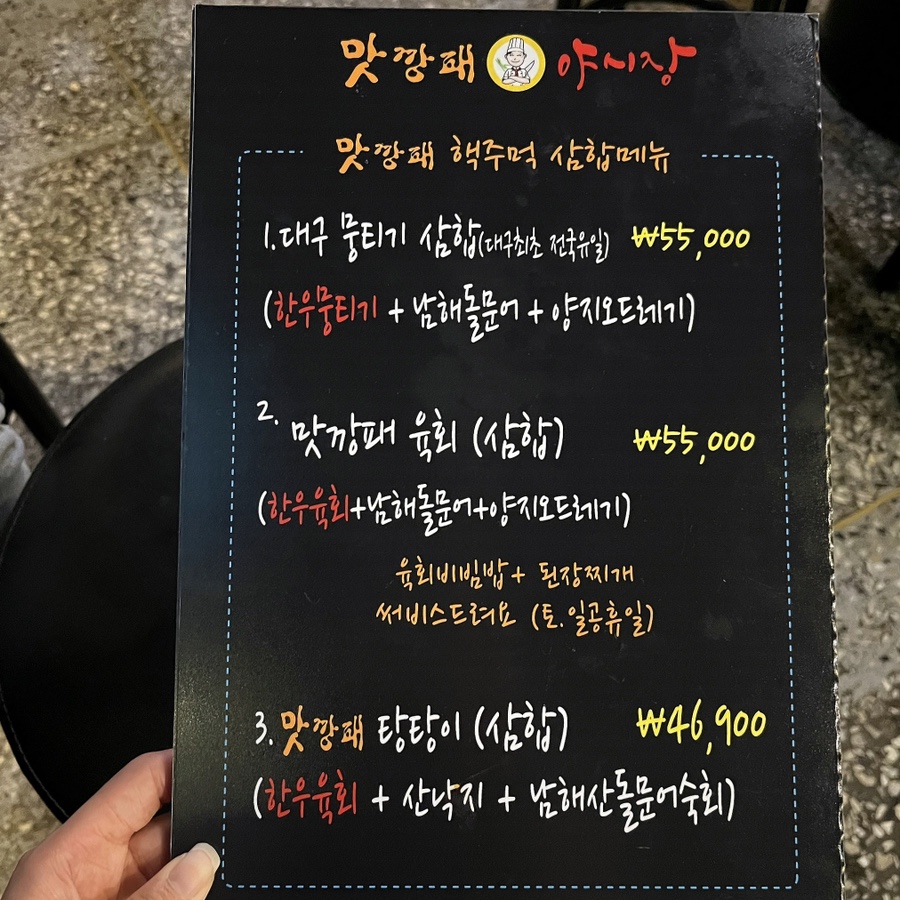 맛깡패 야시장
맛깡패 핵주먹 삼합메뉴
1. 대구 뭉티기 삼합(대구최초 전국유일) ₩55,000
(한우뭉티기 + 남해돌문어 + 양지오드레기)
2. 맛깡패 육회 (삼합) ₩55,000
(한우육회+남해돌문어+양지오드레기)
육회비빔밥+ 된장찌개
써비스드려요 (토.일공휴일)
3. 맛깡패 탕탕이 (삼합) ₩46,900
(한우육회 + 산낙지 + 남해산돌문어숙회)